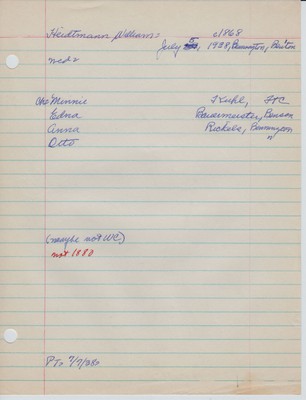 Heidtmann Williams c1868
July 5, 1928, Barrington, Benton
wed 2
Chs Minnie Kuhl, FTC
Edna Bausermeister, Benson
Anna Rickels, Barrington
Otto "
(maybe not WC)
not 1880
PTo 7/7/28